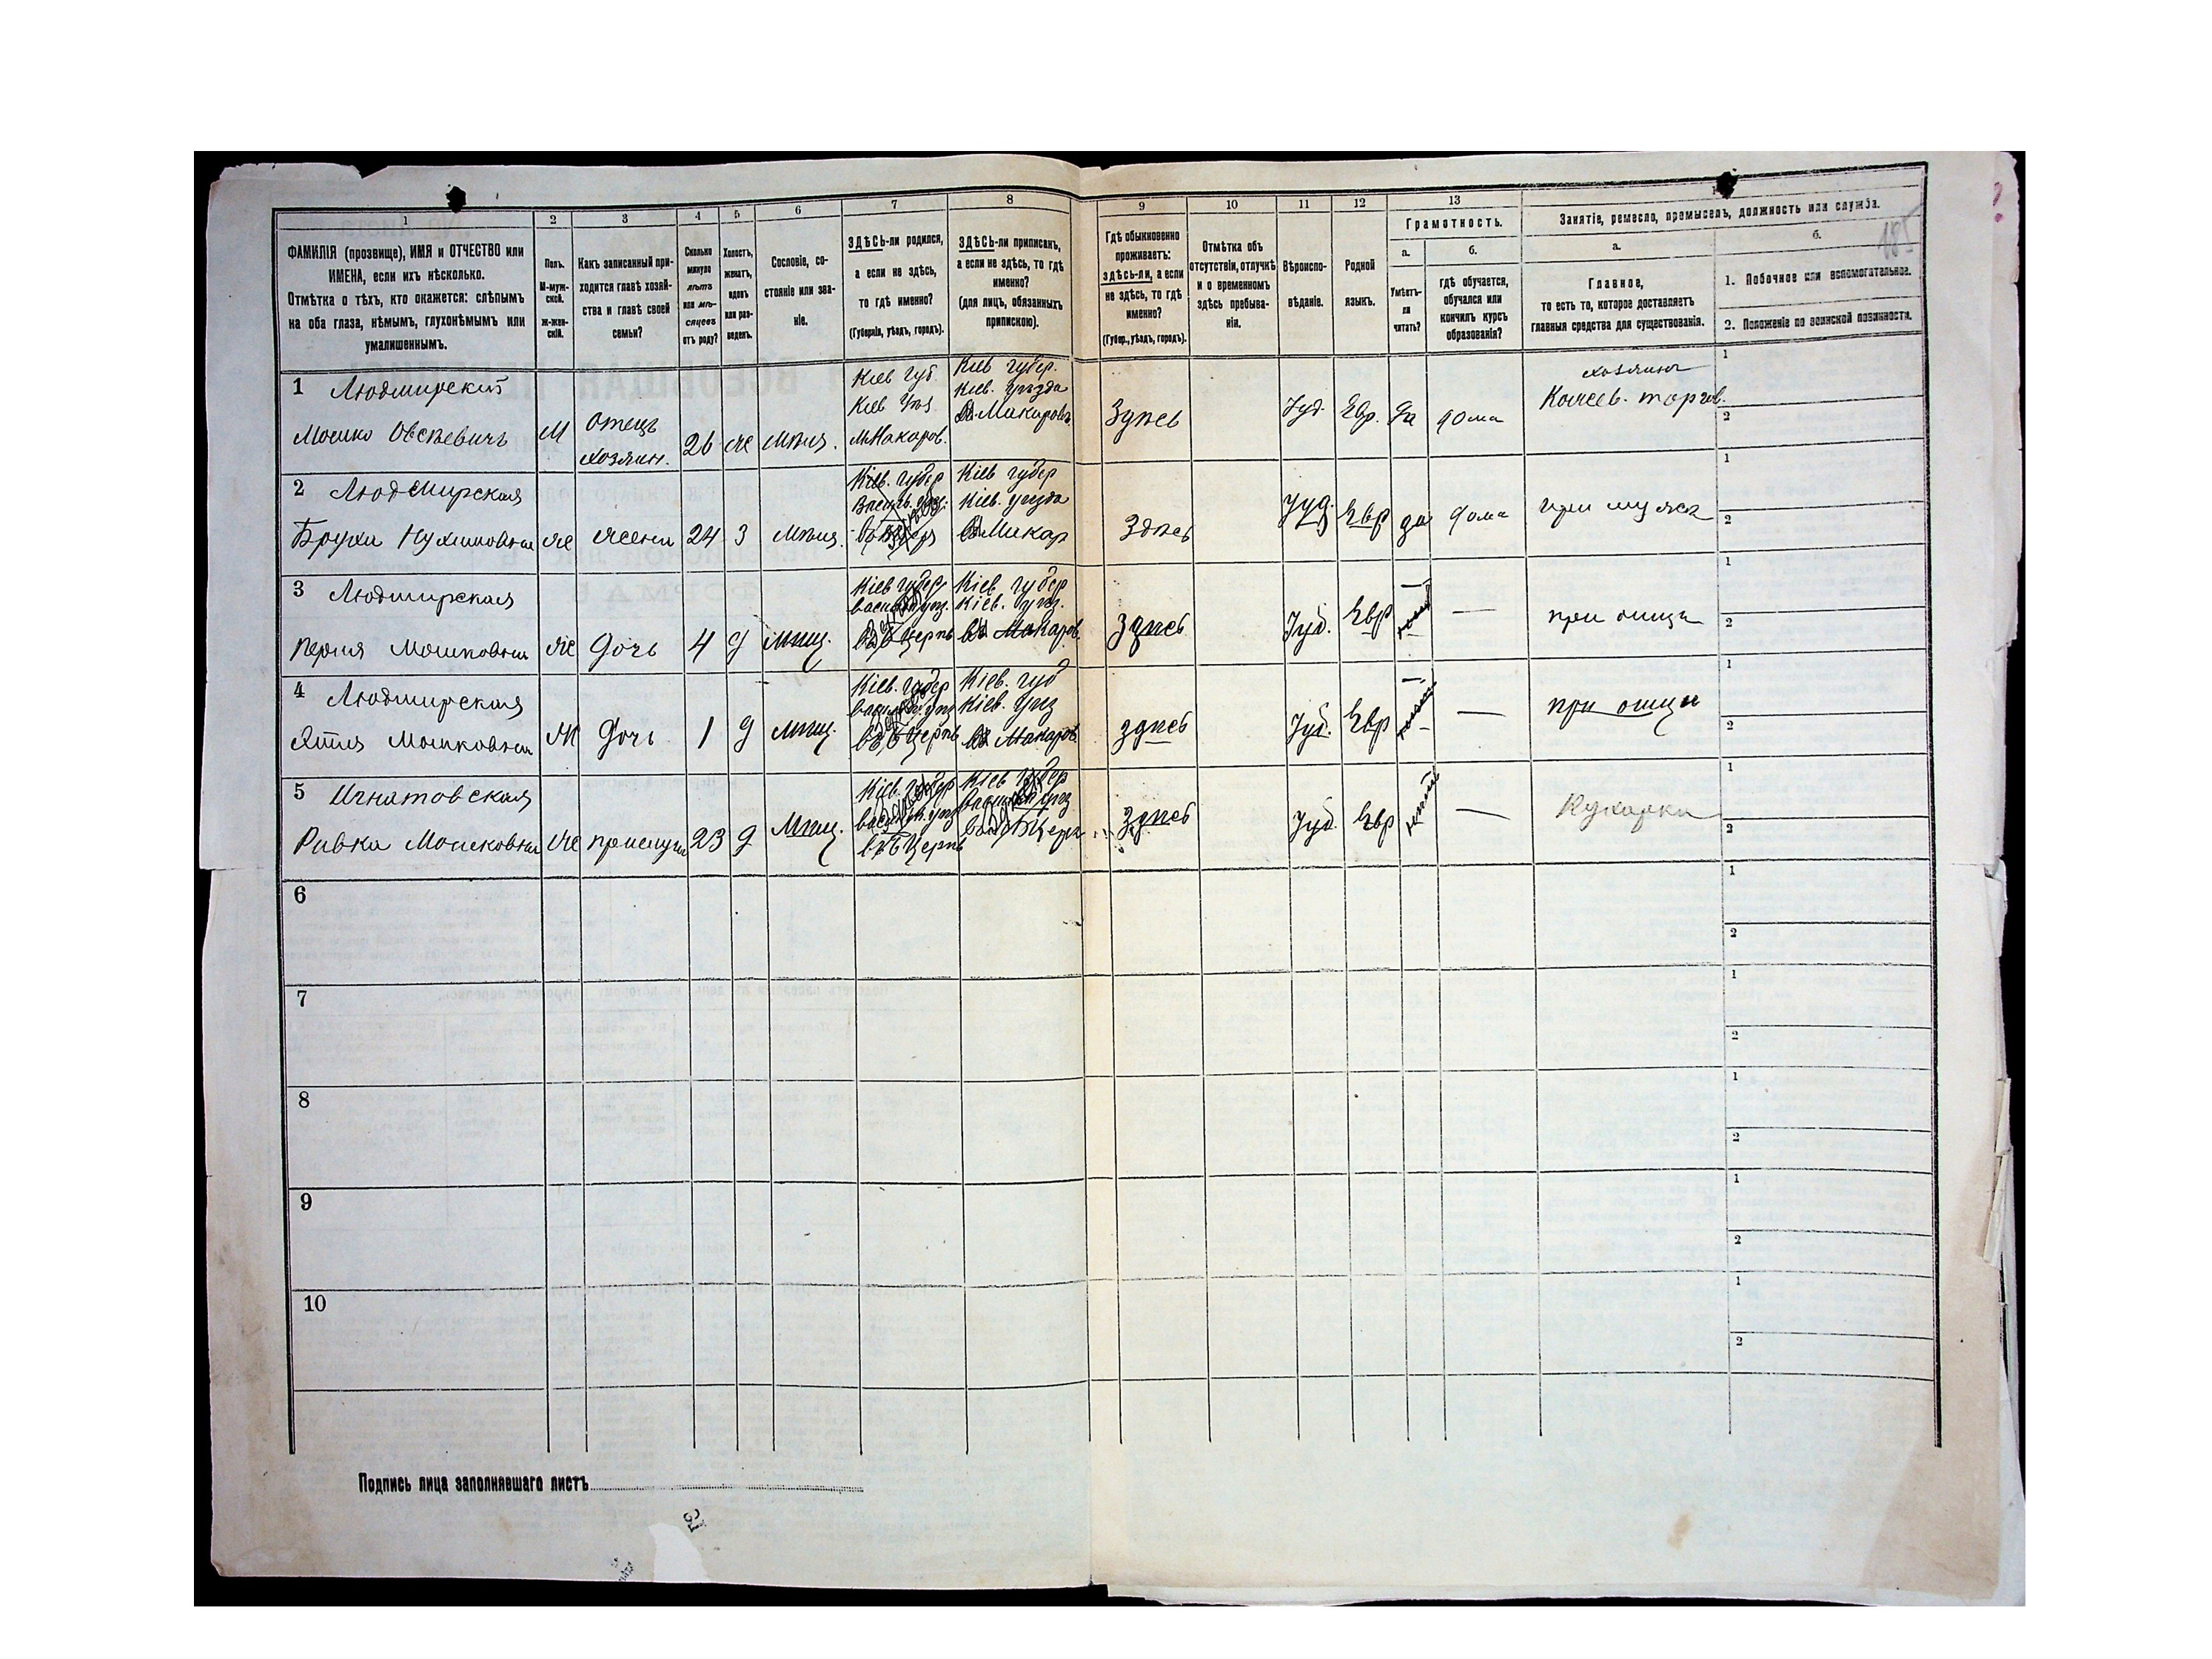 1 2 3 4 5 6 7 8 9 10 11 12 13
ФАМИЛІЯ (прозвище), ИМЯ и ОТЧЕСТВО или
ИМЕНА, если ихъ нѣсколько.
Отмѣтка о тѣхъ, кто окажется: слѣпымъ
на оба глаза, нѣмымъ, глухонѣмымъ или
умалишеннымъ.
Полъ.
М-муж-
ской.
ж-жен-
скій.
Какъ записанный при-
ходится главѣ хозяй-
ства и главѣ своей
семьи?
Сколько
минуло
лѣтъ
или мѣ-
сяцевъ
отъ роду?
Холостъ,
женатъ,
вдовъ
или раз-
веденъ.
Сословіе, со-
стояніе или зва-
ніе.
ЗДѢСЬ-ли родился,
а если не здѣсь,
то гдѣ именно?
(Губернія, уѣздъ, городъ).
ЗДѢСЬ-ли приписанъ,
а если не здѣсь, то гдѣ
именно?
(для лицъ, обязанныхъ
припискою).
Гдѣ обыкновенно
проживаетъ:
здѣсь-ли, а если
не здѣсь, то гдѣ
именно?
(Губер., уѣздъ, городъ).
Отмѣтка объ
отсутствіи, отлучкѣ
и о временномъ
здѣсь пребыва-
ніи.
Вѣроиспо-
вѣданіе.
Родной
языкъ.
Грамотность.
а.
Умѣетъ-
ли
читать?
б.
гдѣ обучается,
обучался или
кончилъ курсъ
образованія?
Занятіе, ремесло, промыселъ, должность или служба.
а.
Главное,
то есть то, которое доставляетъ
главныя средства для существованія.
б.
1. Побочное или вспомогательное.
2. Положеніе по воинской повинности.
185
1 Людмирскій
Мошко Овсѣевичъ
М
Отецъ
хозяин.
26
же
Мѣщ.
Кіев Губ.
Кіев Уѣз
М. Макаров.
Кіев губер.
Кіев. уѣзда
Макаровъ
Здѣсь
Іуд.
Евр.
да
дома
хозяинъ
торгов.
1
2
2 Людмирская
Нухимовна
же
жена
24
З
Мѣщ.
Кіев. губер
Кіев губер
Кіев. уѣзда
Макар
Здѣсь
Іуд.
Евр
да
дома
при мужѣ
1
2
3 Людмирская
Перля Мошковна
же
дочь
4
д
мѣщ.
Кіев губер
Церкв
Кіев губер
Кіев. уѣз.
Макаров.
здѣсь
Іуд.
Евр
—
—
при отцѣ
1
2
4 Людмирская
Мошковна
Ж
дочь
1
д
мѣщ.
Кіев. губер
Церкв
Кіев. губ
Кіев. уѣз
Макаров.
здѣсь
Іуд.
Евр
—
—
при отцѣ
1
2
5 Игнатовская
Ривка Мошковна
же
23
д
Мѣщ.
Кіев. губер
Церкв
Кіев губер
здѣсь
Іуд.
Евр
—
Кухарка
1
2
6
1
2
7
1
2
8
1
2
9
1
2
10
1
2
Подпись лица заполнявшаго листъ